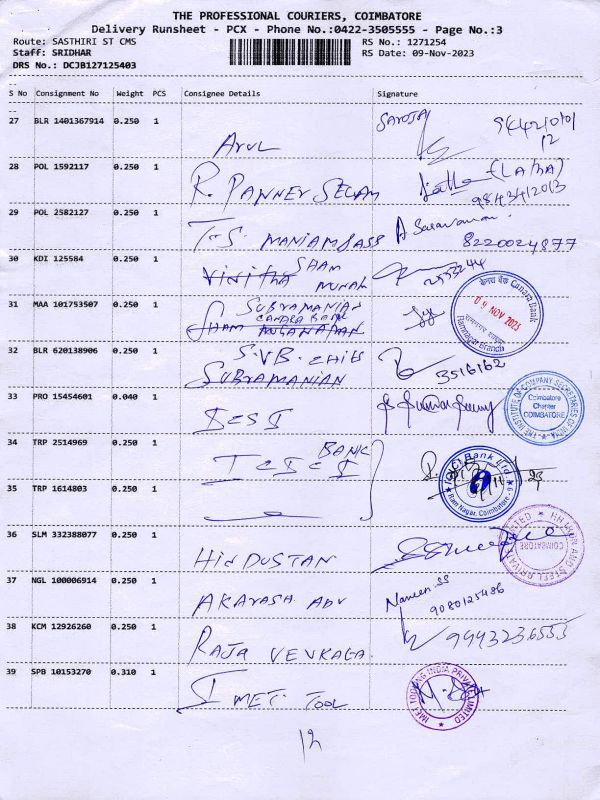 THE PROFESSIONAL COURIERS, COIMBATORE
Delivery Runsheet - PCX - Phone No.:0422-3505555 - Page No.:3
Route: SASTHIRI ST CMS RS No.: 1271254
Staff: SRIDHAR RS Date: 09-Nov-2023
DRS No.: DCJB127125403
S No Consignment No Weight PCS Consignee Details Signature
27 BLR 1401367914 0.250 1 Arul SAROJA
28 POL 1592117 0.250 1 R. PANNEY SELAM (LATHA)
29 POL 2582127 0.250 1 T.S. MANIAM A Saravanan
8220024877
30 KDI 125584 0.250 1 SHAM
31 MAA 101753507 0.250 1 SUBRAMANIAN
CANARA BANK
SHAM
Canara Bank
09 NOV 2023
Ramnagar Branch
32 BLR 620138906 0.250 1 S.V.B. chits 3516162
SUBRAMANIAN
33 PRO 15454601 0.040 1 ICSI
THE INSTITUTE OF COMPANY SECRETARIES OF INDIA
Coimbatore
Chapter
COIMBATORE
34 TRP 2514969 0.250 1 ICICI BANK
ICICI Bank Ltd
Ram Nagar, Coimbatore - 9
35 TRP 1614803 0.250 1
36 SLM 332388077 0.250 1 HINDUSTAN
COIMBATORE
37 NGL 100006914 0.250 1 AKAYASH ADV Naveen SS
9080125486
38 KCM 12926260 0.250 1 RAJA VENKAGA 9943236555
39 SPB 10153270 0.310 1 IMET TOOL
IMET TOOLING INDIA PRIVATE LIMITED
12